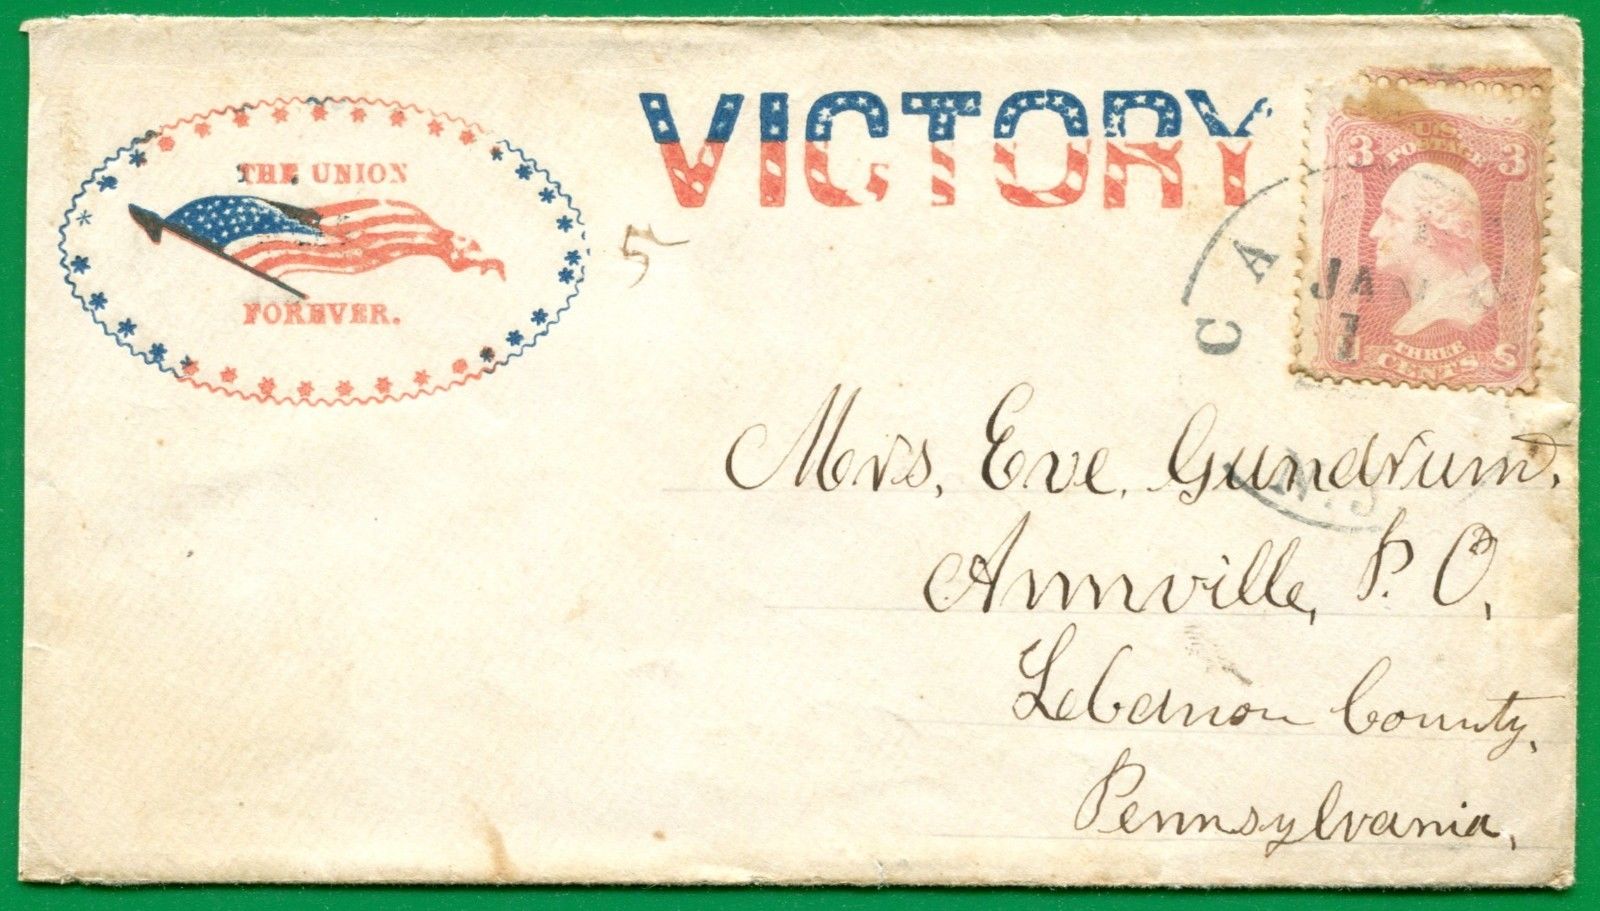 THE UNION
FOREVER.
VICTORY
5
U.S.
POSTAGE
3 3
THREE
CENTS
CA
JA
1
N.J
Mrs, Eve, Gundrum,
Annville, P. O,
Lebanon County,
Pennsylvania,